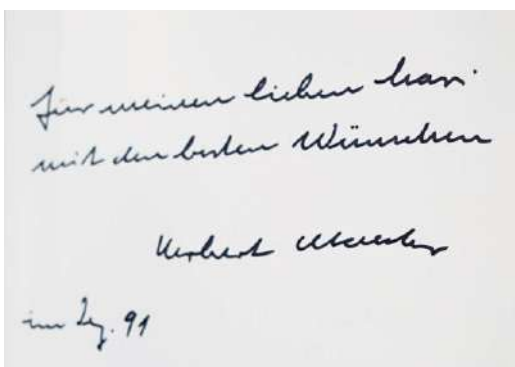 für meinen lieben
mit den besten Wünschen
Herbert
im Dez. 91